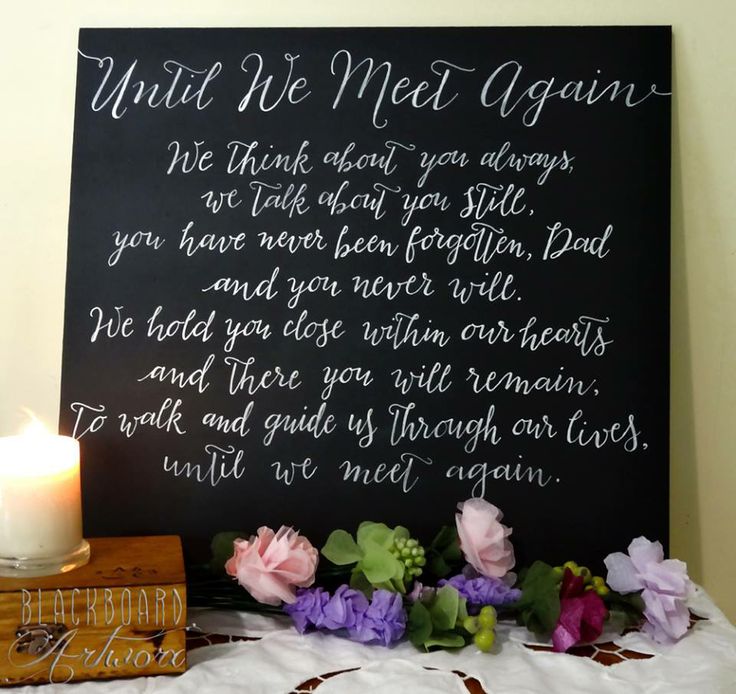 Until We Meet Again
We think about you always,
we talk about you still,
you have never been forgotten, Dad
and you never will.
We hold you close within our hearts
and there you will remain,
to walk and guide us through our lives,
until we meet again.
BLACKBOARD
Artworx